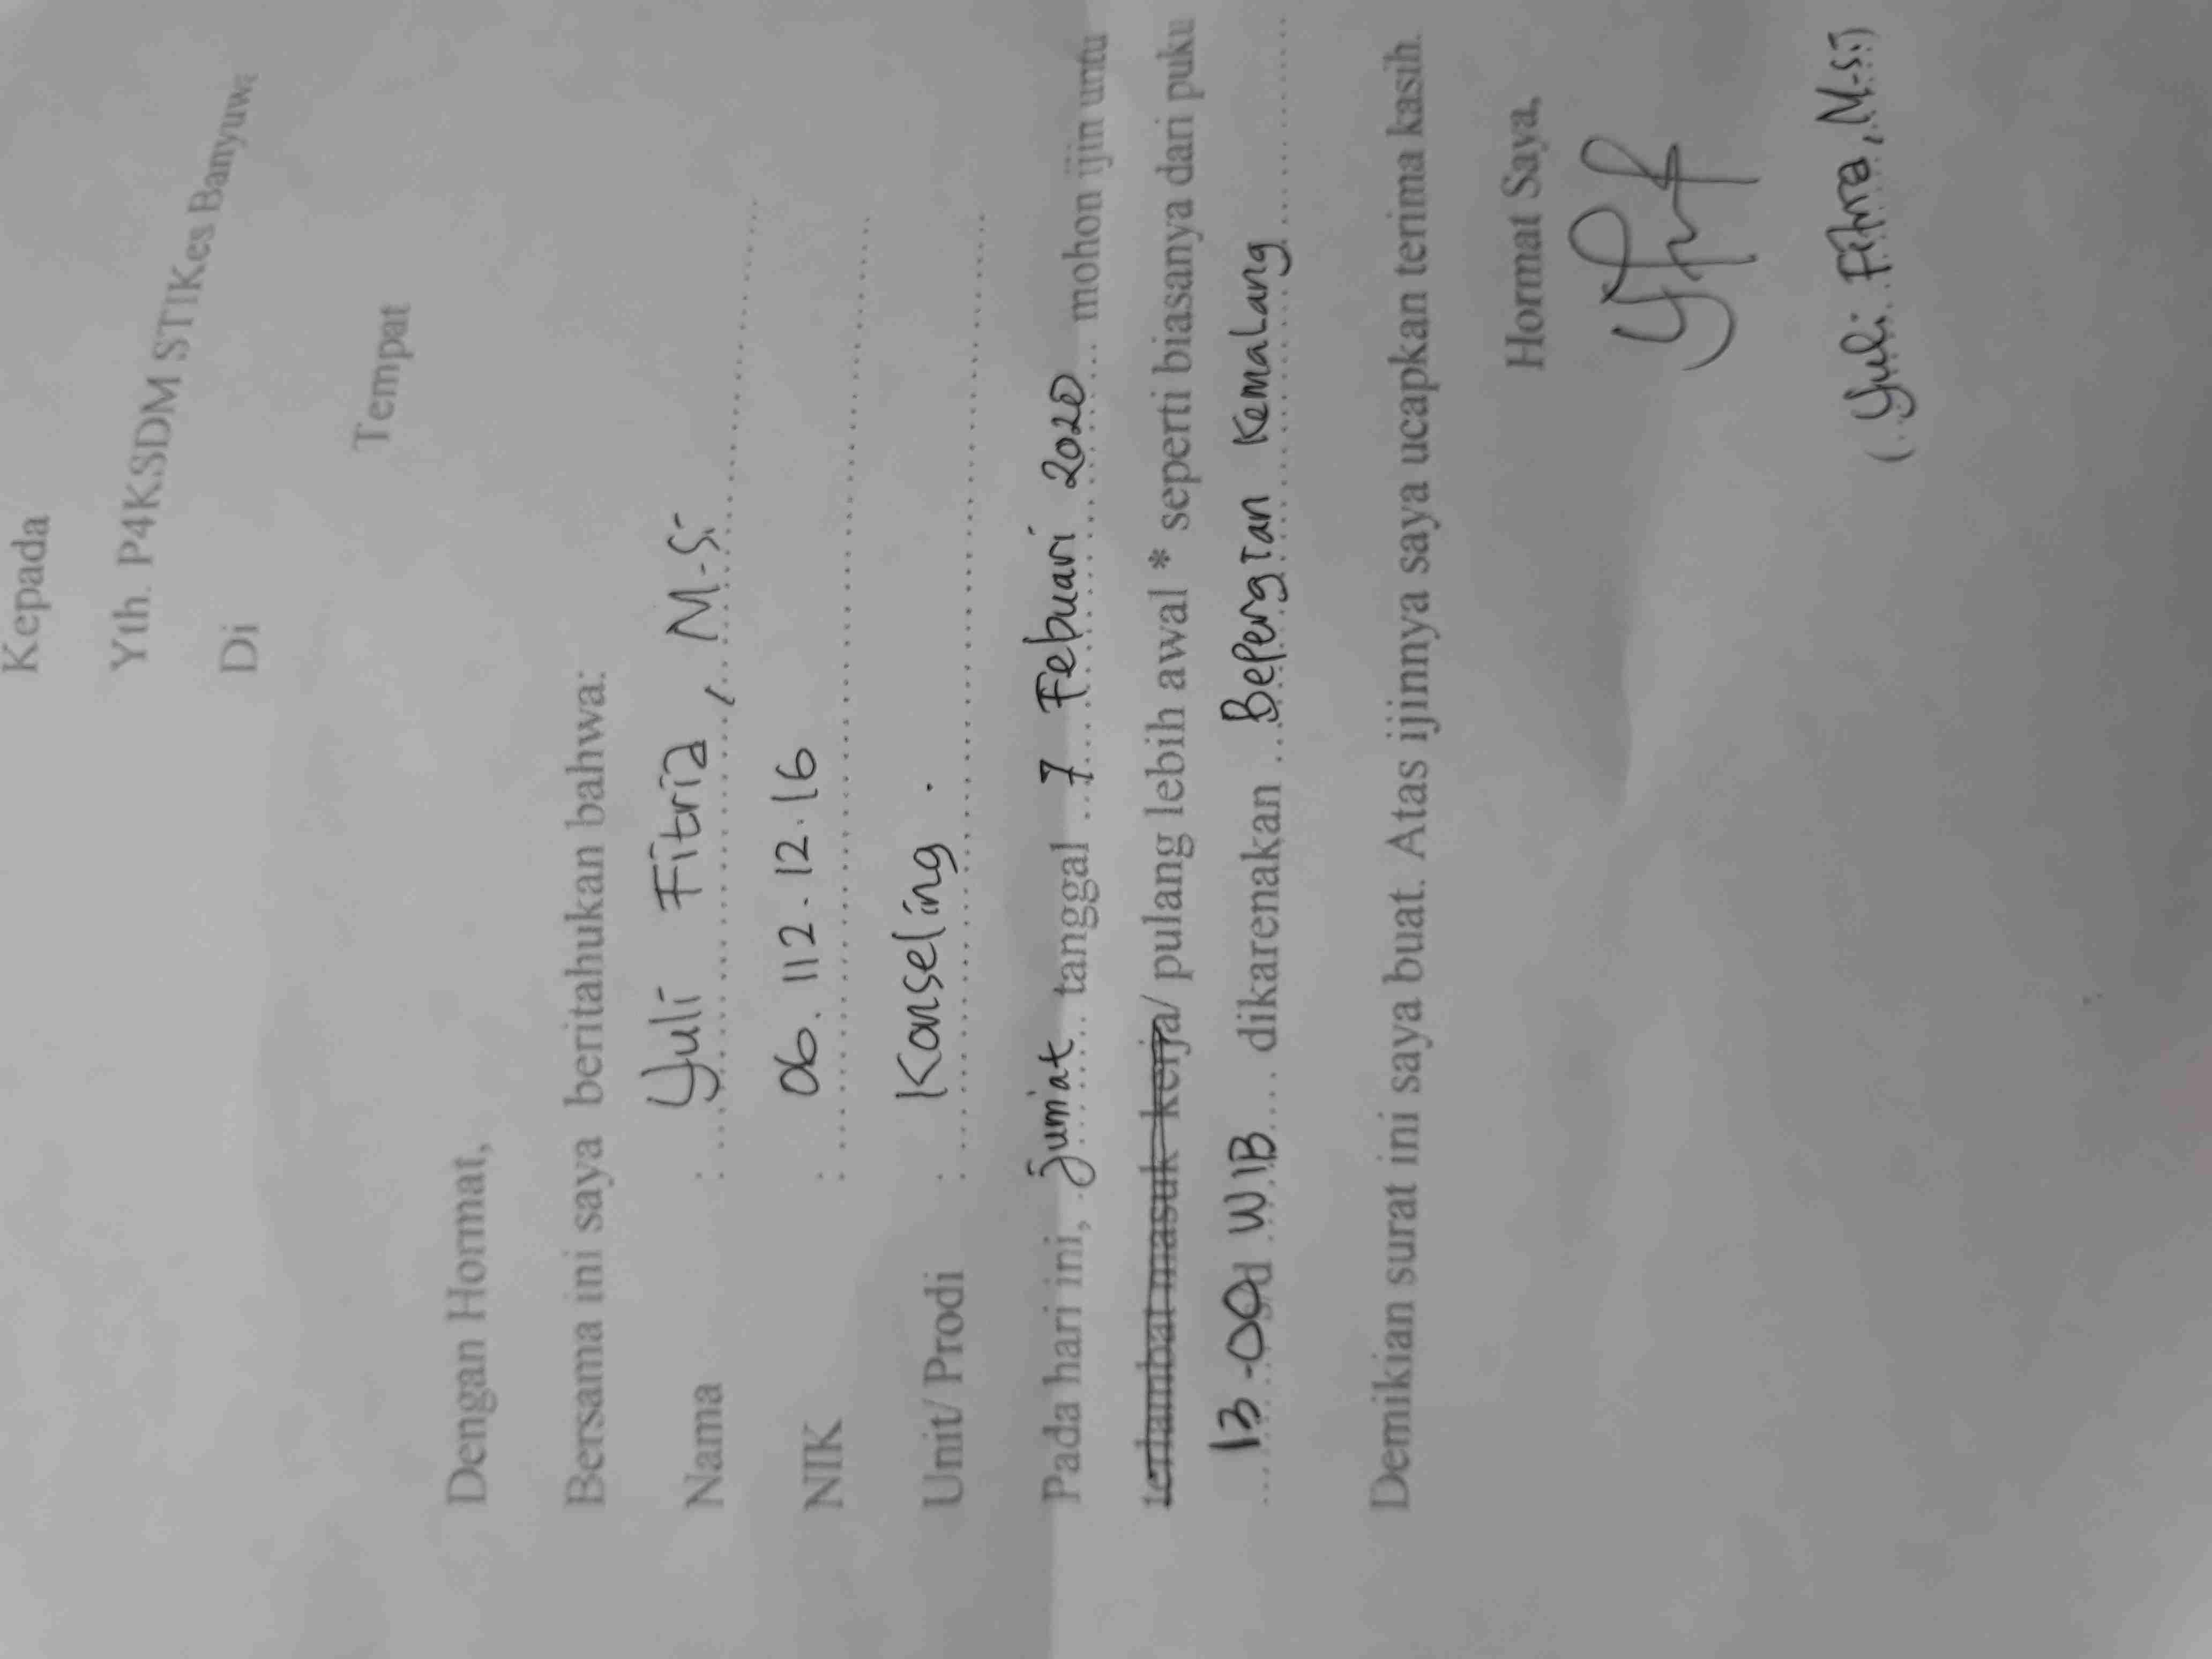 Kepada
Yth. P4KSDM STIKes Banyuw
Di
Tempat
Dengan Hormat,
Bersama ini saya beritahukan bahwa:
Nama : Yuli Fitria, M.Si
NIK : 06.112.12.16
Unit/ Prodi : Konseling.
Pada hari ini, Jum'at tanggal 7 Febuari 2020 mohon ijin untu
terlambat masuk kerja/ pulang lebih awal * seperti biasanya dari puku
13.00 WIB dikarenakan Bepergian Kemalang
Demikian surat ini saya buat. Atas ijinnya saya ucapkan terima kasih.
Hormat Saya,
(Yuli Fitria, M.Si)